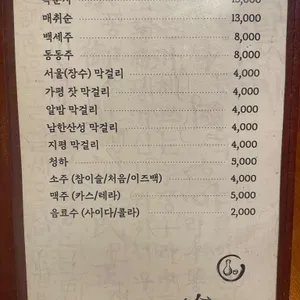 매취순 13,000
백세주 8,000
동동주 8,000
서울(장수) 막걸리 4,000
가평 잣 막걸리 4,000
알밤 막걸리 4,000
남한산성 막걸리 4,000
지평 막걸리 4,000
청하 5,000
소주 (참이슬/처음/이즈백) 4,000
맥주 (카스/테라) 5,000
음료수 (사이다/콜라) 2,000